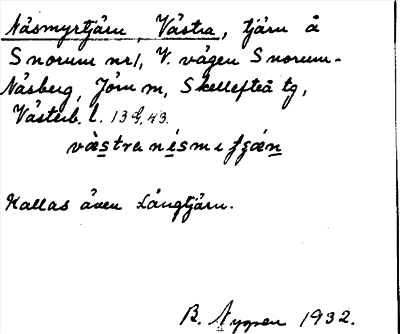 Näsmyrtjärn, Västra, tjärn å
Snorum nr1, V. vägen Snorum-
Näsberg, Jörn m, Skellefteå tg,
Västerb. l.
västra
Kallas även Långtjärn.
B. Nygren 1932.